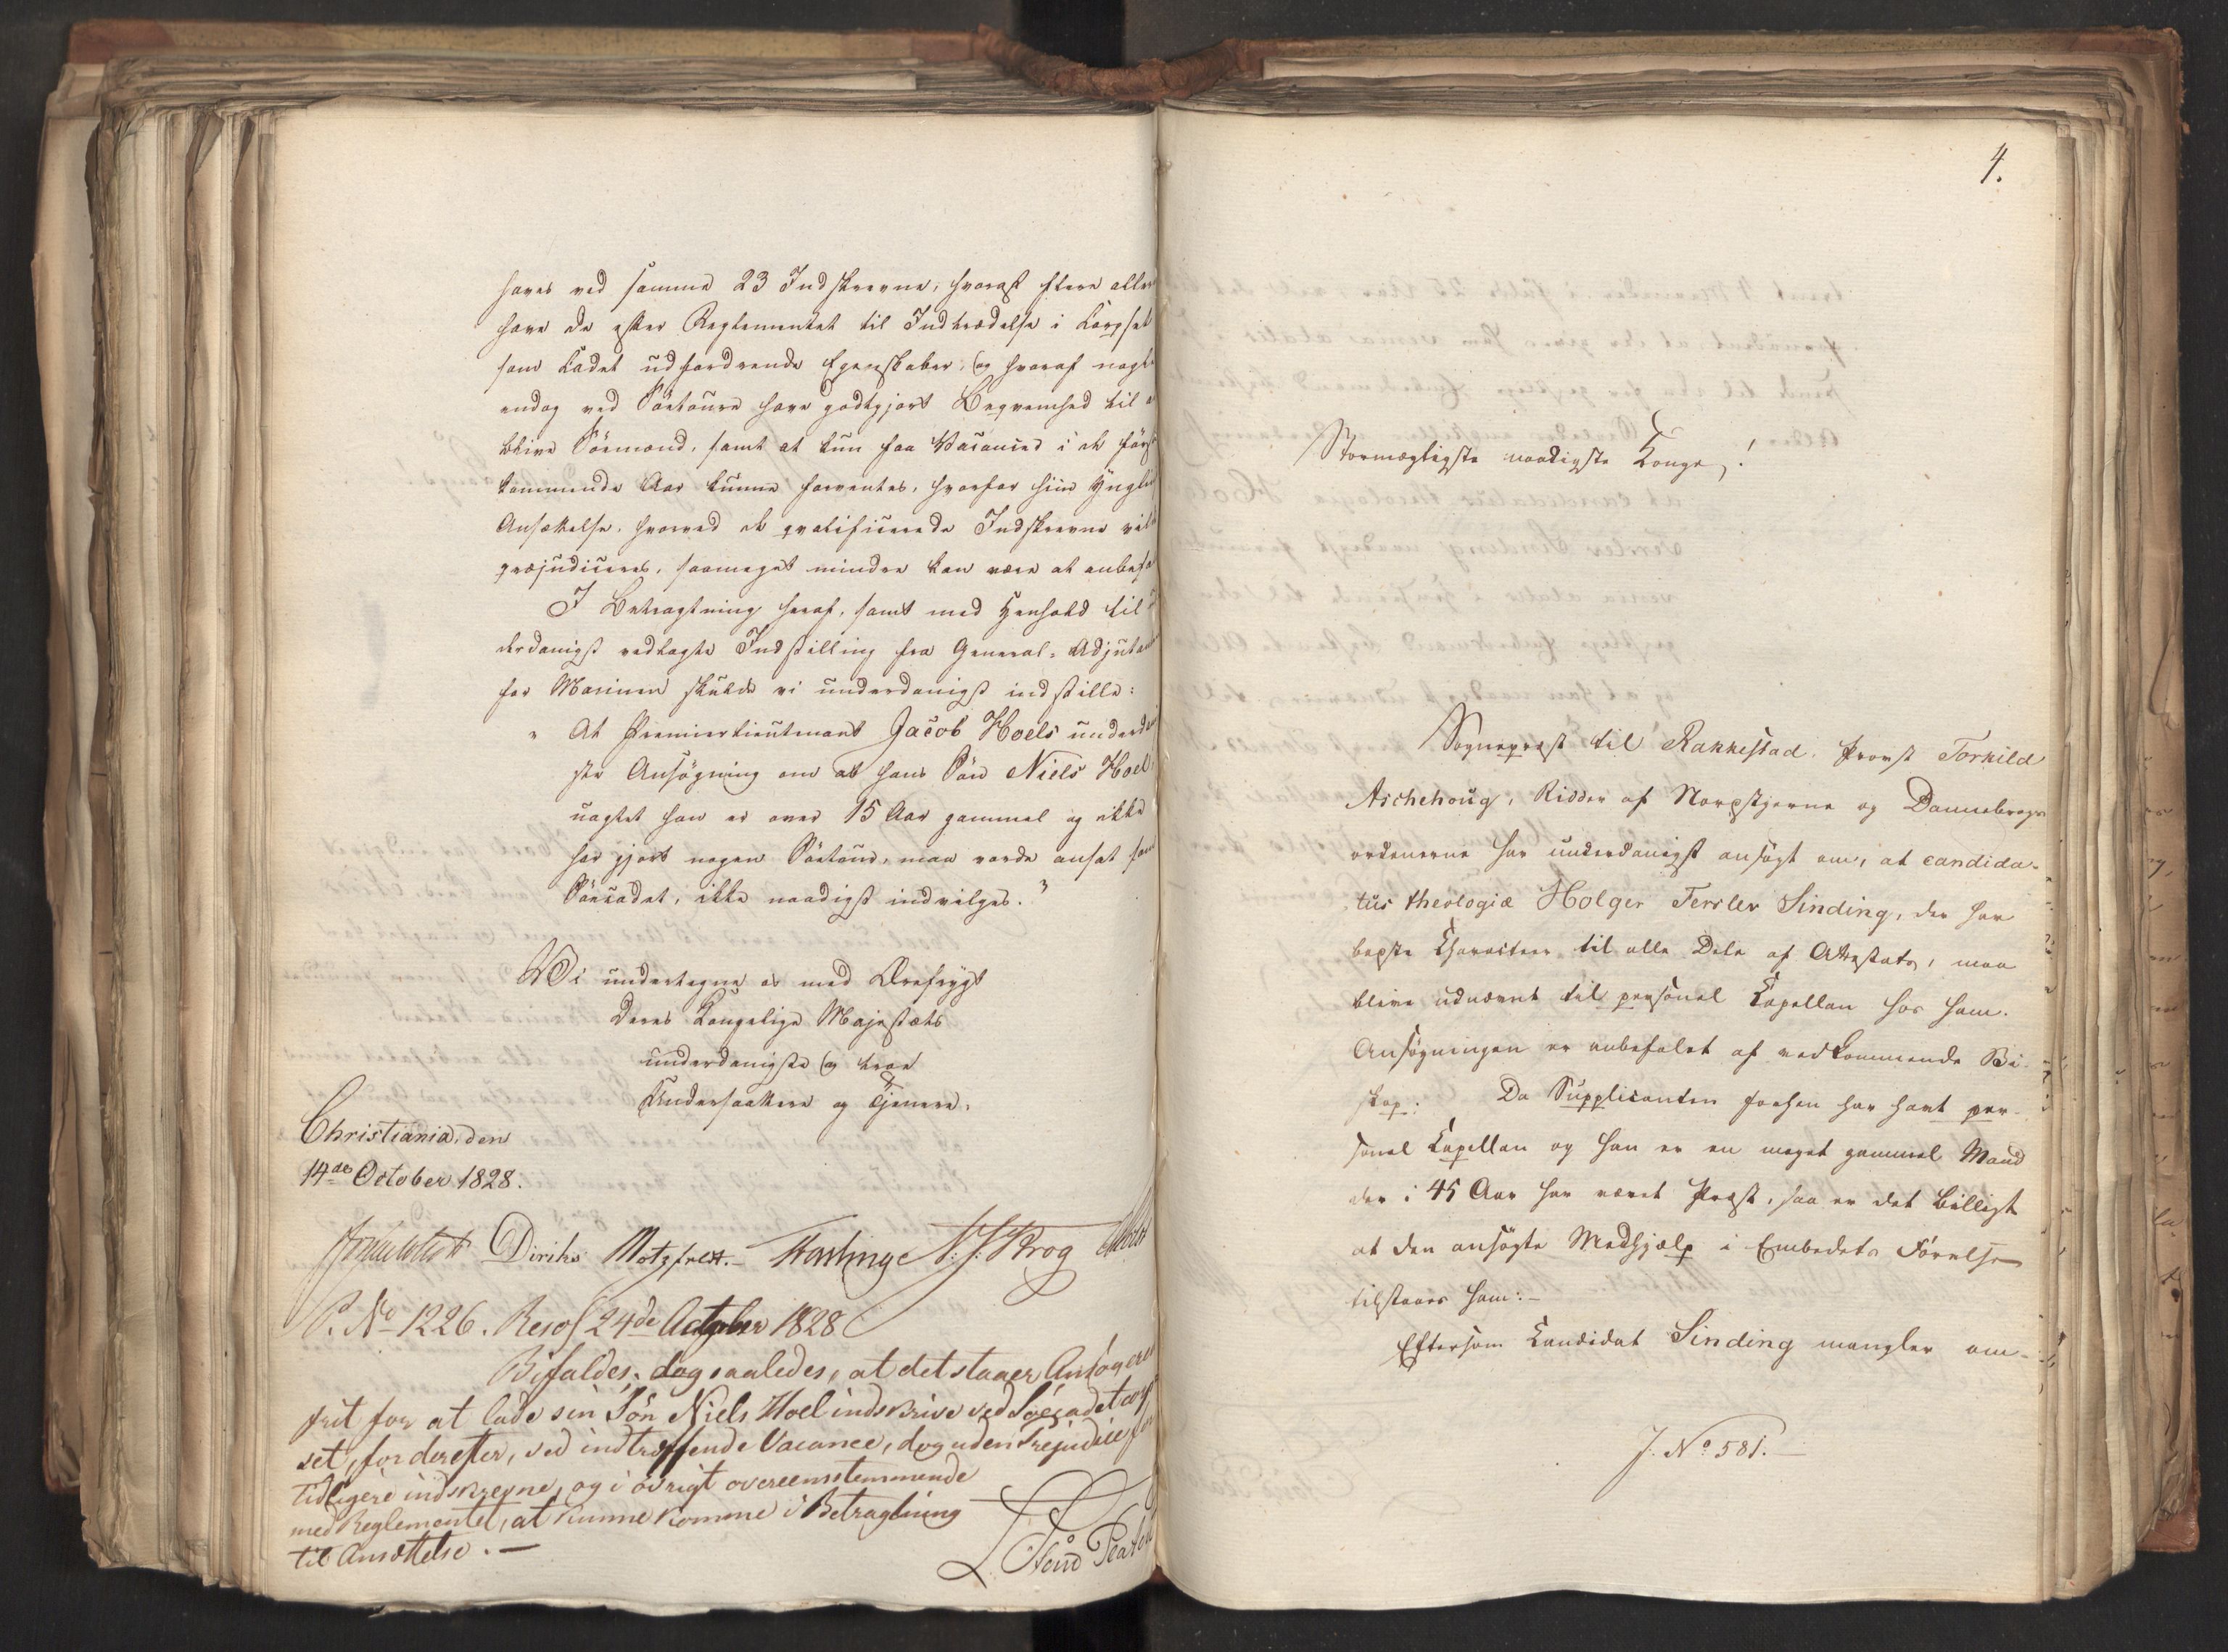 haves ved samme 23 Indskrevne, hvoraf flere aller
have de efter Reglementet til Indtrædelse i Corpset
som Cadet udfordrende Egenskaber, og hvoraf nogle
endog ved Söetoure have godtgjort Beqvemhed til a
blive Sömænd, samt at kun faa Vacancer i de förs
kommende Aar kunne forventes, hvorfor hiin Ynglin
Ansættelse, hvorved de qvalificerede Indskrevne vil
præjudiceres, saameget mindre kan være at anbefa
I Betragtning heraf, samt med Henhold til
derdanigst vedlagte Indstilling fra General-Adjutan
for Marinen skulde vi underdanigst indstille:
" At Premierlieutenant Jacob Hoels underda
ste Ansögning om at hans Sön Niels Hoel,
uagtet han er over 15 Aar gammel og ikke
har gjort nogen Söetour, maa vorde ansat som
Söecadet, ikke naadigst indvilges."
Vi undertegne os med Ærefrygt
Deres Kongelige Majestæts
underdanigste og troe
Undersaatter og Tjenere.
Christiania, den
14de October 1828.
Diriks Motzfeldt. Fasting N. J. Krog
P. No 1226. Resol 24de October 1828
Bifaldes, dog saaledes, at det staaer Ansögeren
frit for at lade sin Sön Niels Hoel indskrive ved Söecadetcorp
set, for derefter, ved indtræffende Vacance, dog uden Præjudice for
tidligere indskrevne, og i övrigt overeensstemmende
med Reglementet, at kunne komme i Betragtning
til Ansættelse. —
4.
Stormægtigste naadigste Konge!
Sognepræst til Rakkestad, Provst Torkild
Aschehoug, Ridder af Nordstjerne og Dannebrogs
ordenerne har underdanigst ansögt om, at candida-
tus theologiæ Holger Fersler Sinding, der har
bedste Charakteer til alle Dele af Attestats, maa
blive udnævnt til personel Capellan hos ham.
Ansögningen er anbefalet af vedkommende Bi-
skop. Da Supplicanten forhen har havt per-
sonel Capellan og han er en meget gammel Mand
der i 45 Aar har været Præst, saa er det billigt
at den ansögte Medhjælp i Embedets Förelse
tilstaaes ham.—
Eftersom Candidat Sinding mangler om-
J. No 581.